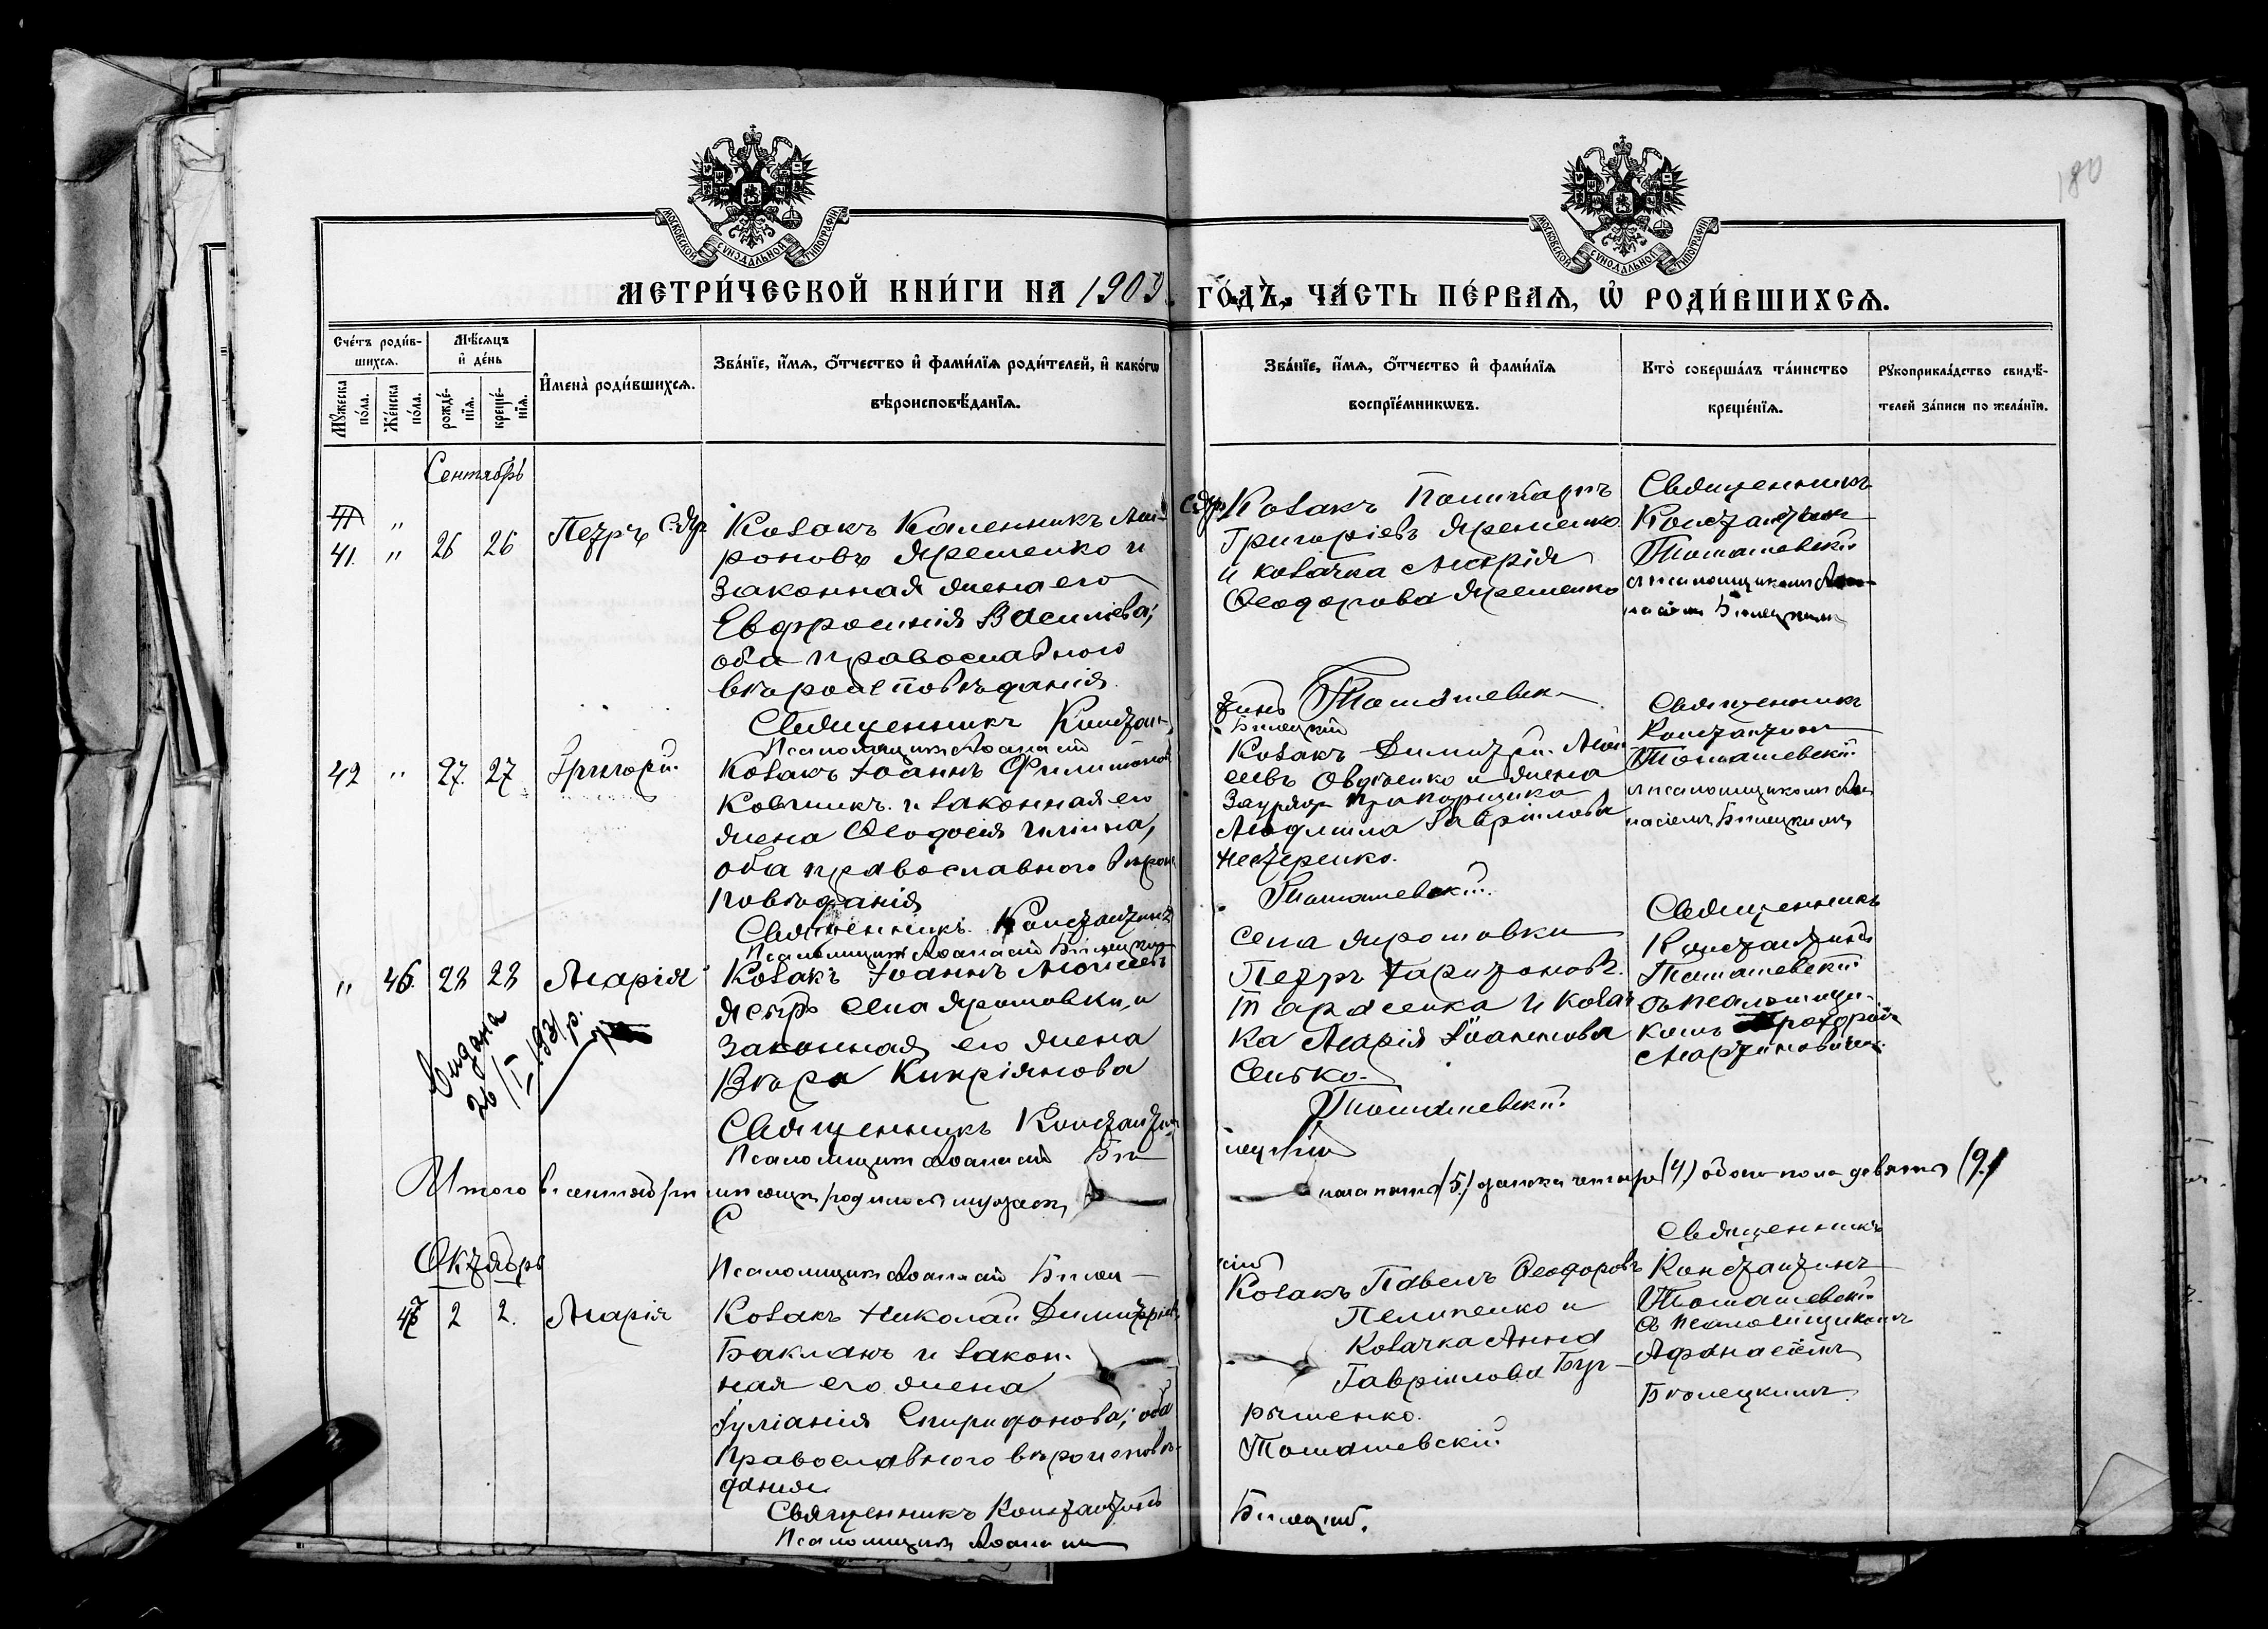 180
МОСКОВСКОЙ СѴНОДАЛЬНОЙ ТИПОГРАФІИ
МОСКОВСКОЙ СѴНОДАЛЬНОЙ ТИПОГРАФІИ
МЕТРИ́ЧЕСКОЙ КНИ́ГИ НА 1903 ГО́ДЪ, ЧА́СТЬ ПЕ́РВАѦ, Ѡ҆ РОДИ́ВШИХСѦ.
Сче́тъ роди́вшихсѧ.
Мꙋ́жеска по́ла.
Же́нска по́ла.
Мѣ́сѧцъ и҆ де́нь
рожде́нїѧ.
креще́нїѧ.
И҆мена̀ роди́вшихсѧ.
Зва́нїе, и҆́мѧ, ѻ҆́тчество и҆ фами́лїѧ роди́телей, и҆ како́гѡ
вѣроисповѣ́данїѧ.
Зва́нїе, и҆́мѧ, ѻ҆́тчество и҆ фами́лїѧ
воспрїе́мникѡвъ.
Кто̀ соверша́лъ та́инство
креще́нїѧ.
Рꙋкоприкла́дство свидѣ́-
телей за́писи по жела́нїю.
Сентябрь
41 "
41. " 26 26 Петръ
Козакъ Каленникъ Ми-
роновъ Яременко и
законная жена его
Евфросинія Василіева;
оба православного
вѣроисповѣданія.
Священникъ Констан-
Псаломщикъ Аѳанасій
Козакъ
Григоріевъ Яременко
и козачка Марія
Ѳеодорова Яременко
тинъ Томашевск
Билецкій
Священникъ
Константин
Томашевскій
с псаломщикомъ Аѳа-
насіем Билецким
42 " 27. 27 Григорій.
Козакъ Іоаннъ Филимонов
Ковшикъ и законная его
жена Ѳеодосія Иліина,
оба православного вѣрои
повѣданія
Священникъ Константинъ
Псаломщикъ Аѳанасій Билецкій
Козакъ Димитрій Мои-
сеевъ Овдѣенко и жена
Зауряд прапорщика
Людмила Гавріилова
Нестеренко.
Томашевскій.
Священникъ
Константин
Томашевскій
с псаломщикомъ Аѳа
насіемъ Билецкимъ
" 46. 28 28 Марія
Видана
26/I 1931 р.
Козакъ Іоаннъ Моисеевъ
села Яротовки, и
законная его жена
Вѣра Кипріянова
Священникъ Константин
Псаломщикъ Аѳанасій Би
Села Яротовки
Петръ Харитоновъ
Тарасенко и козач
ка Марія Іоаннова
Сенько.
Томашевскій.
лецкій
Священникъ
Константинъ
Томашевскій
съ псаломщи-
комъ Прохоромъ
Мартиновичем
Итого в сентябрѣ мѣсяцѣ родилось мужеск
пола пять (5) женска четыре (4) обоего пола девять (9)
Октябрь
Псаломщикъ Аѳанасій Билец
кій
47 2 2. Марія
Козакъ Николай Димитріев
Бакланъ и закон.
ная его жена
Іуліанія Спиридонова; оба
православного вѣроисповѣ-
данія
Священникъ Константинъ
Псаломщикъ Аѳанасій
Козакъ Павелъ Ѳеодоровъ
Пелипенко и
Козачка Анна
Гавріилова
Томашевскій
Билецкій.
Священникъ
Константинъ
Томашевскій
съ псаломщикомъ
Афанасіемъ
Билецкимъ.